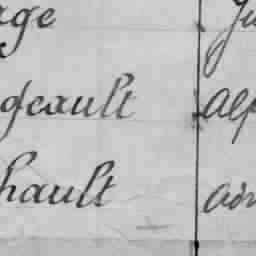 age Ju
geault alp
hault air